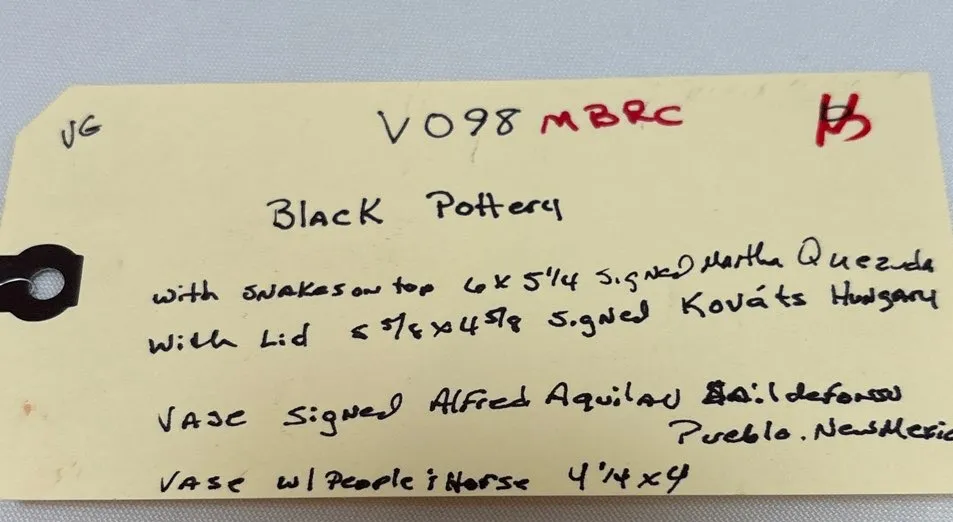 VG
V098 MBRC
Black Pottery
with SNAKES on top 6 x 5 1/4 Signed Martha Quezada
With Lid 5 5/8 x 4 5/8 Signed Kováts Hungary
VASE Signed Alfred Aquilar Ildefonso
Pueblo. New Mexic
VASE w/ People & Horse 4 1/4 x 4